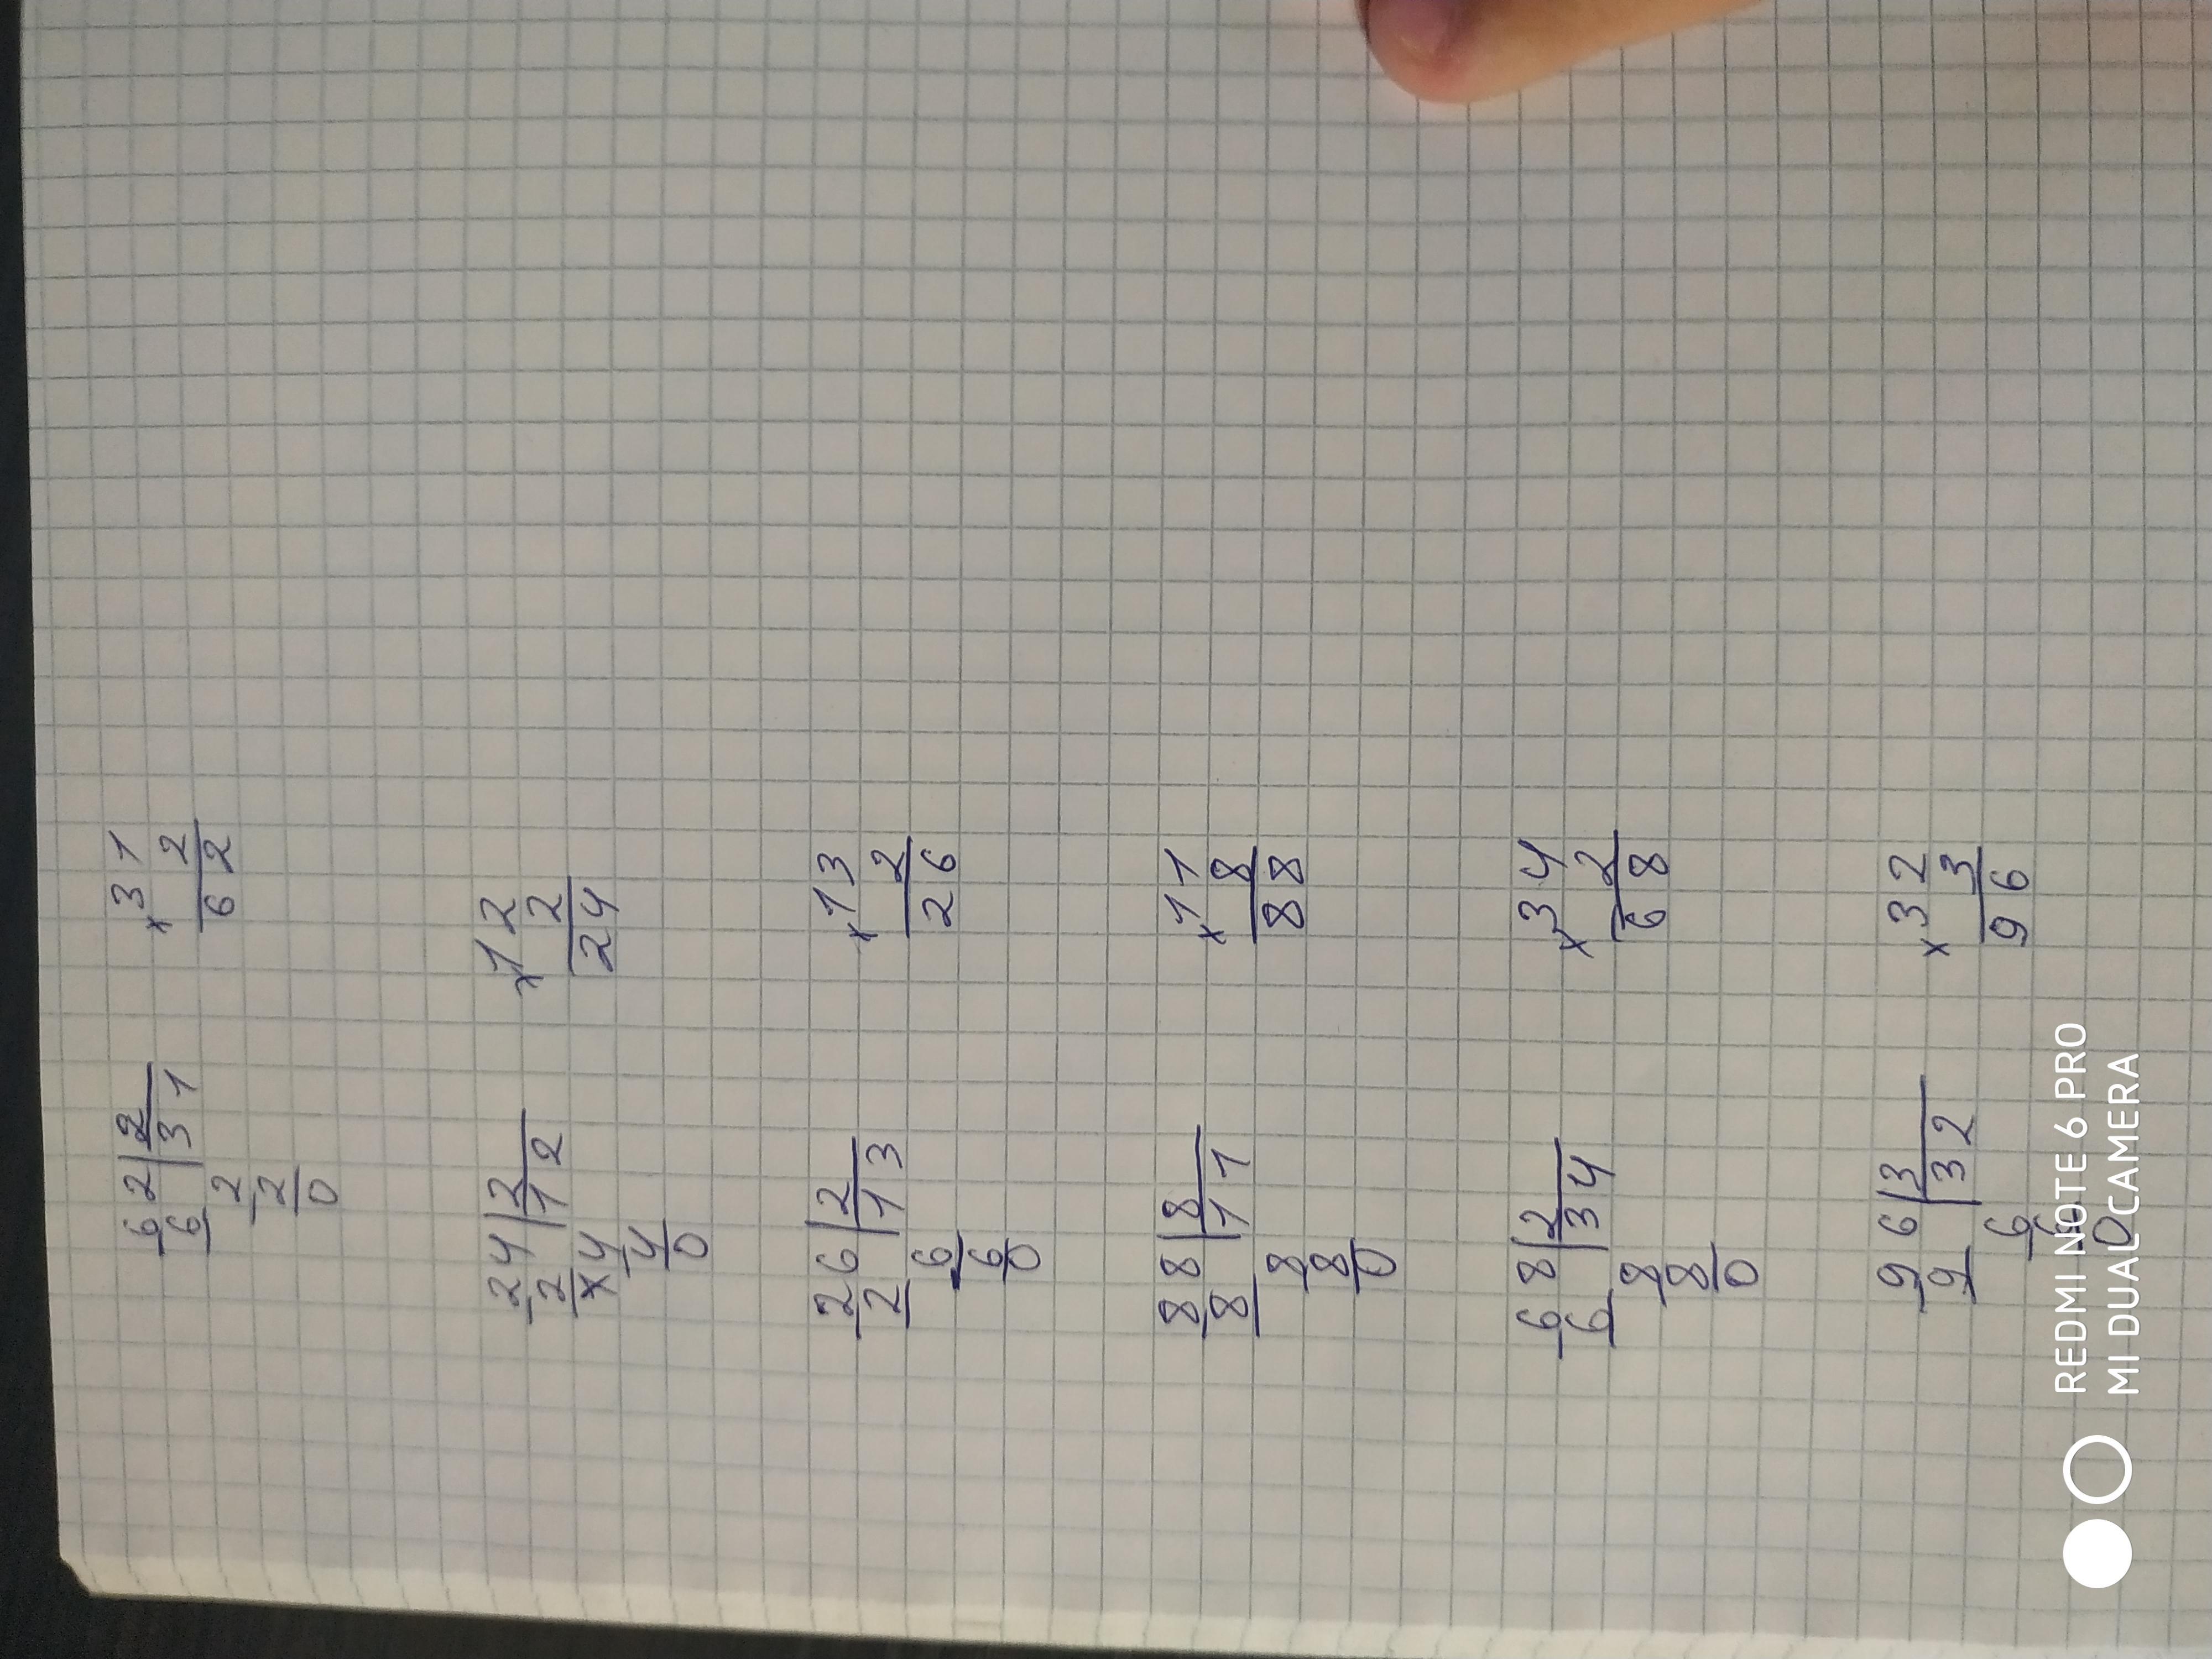 62|2 ×31
6 |31 2
2 62
2
0
24|2 ×12
2 |12 2
×4 24
4
0
26|2 ×13
2 |13 2
6 26
6
0
88|8 ×11
8 |11 8
8 88
8
0
68|2 ×34
6 |34 2
8 68
8
0
96|3 ×32
9 |32 3
6 96
6
0
REDMI NOTE 6 PRO
MI DUAL CAMERA